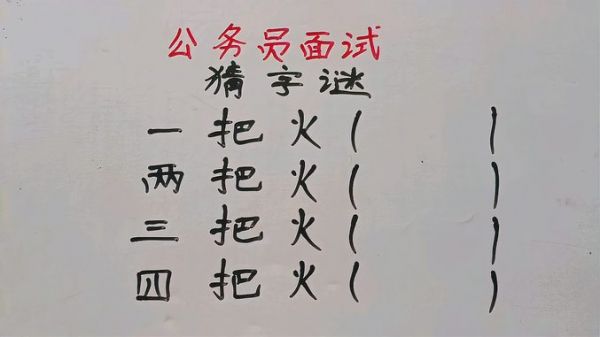 公务员面试
猜字谜
一把火( )
两把火( )
三把火( )
四把火( )